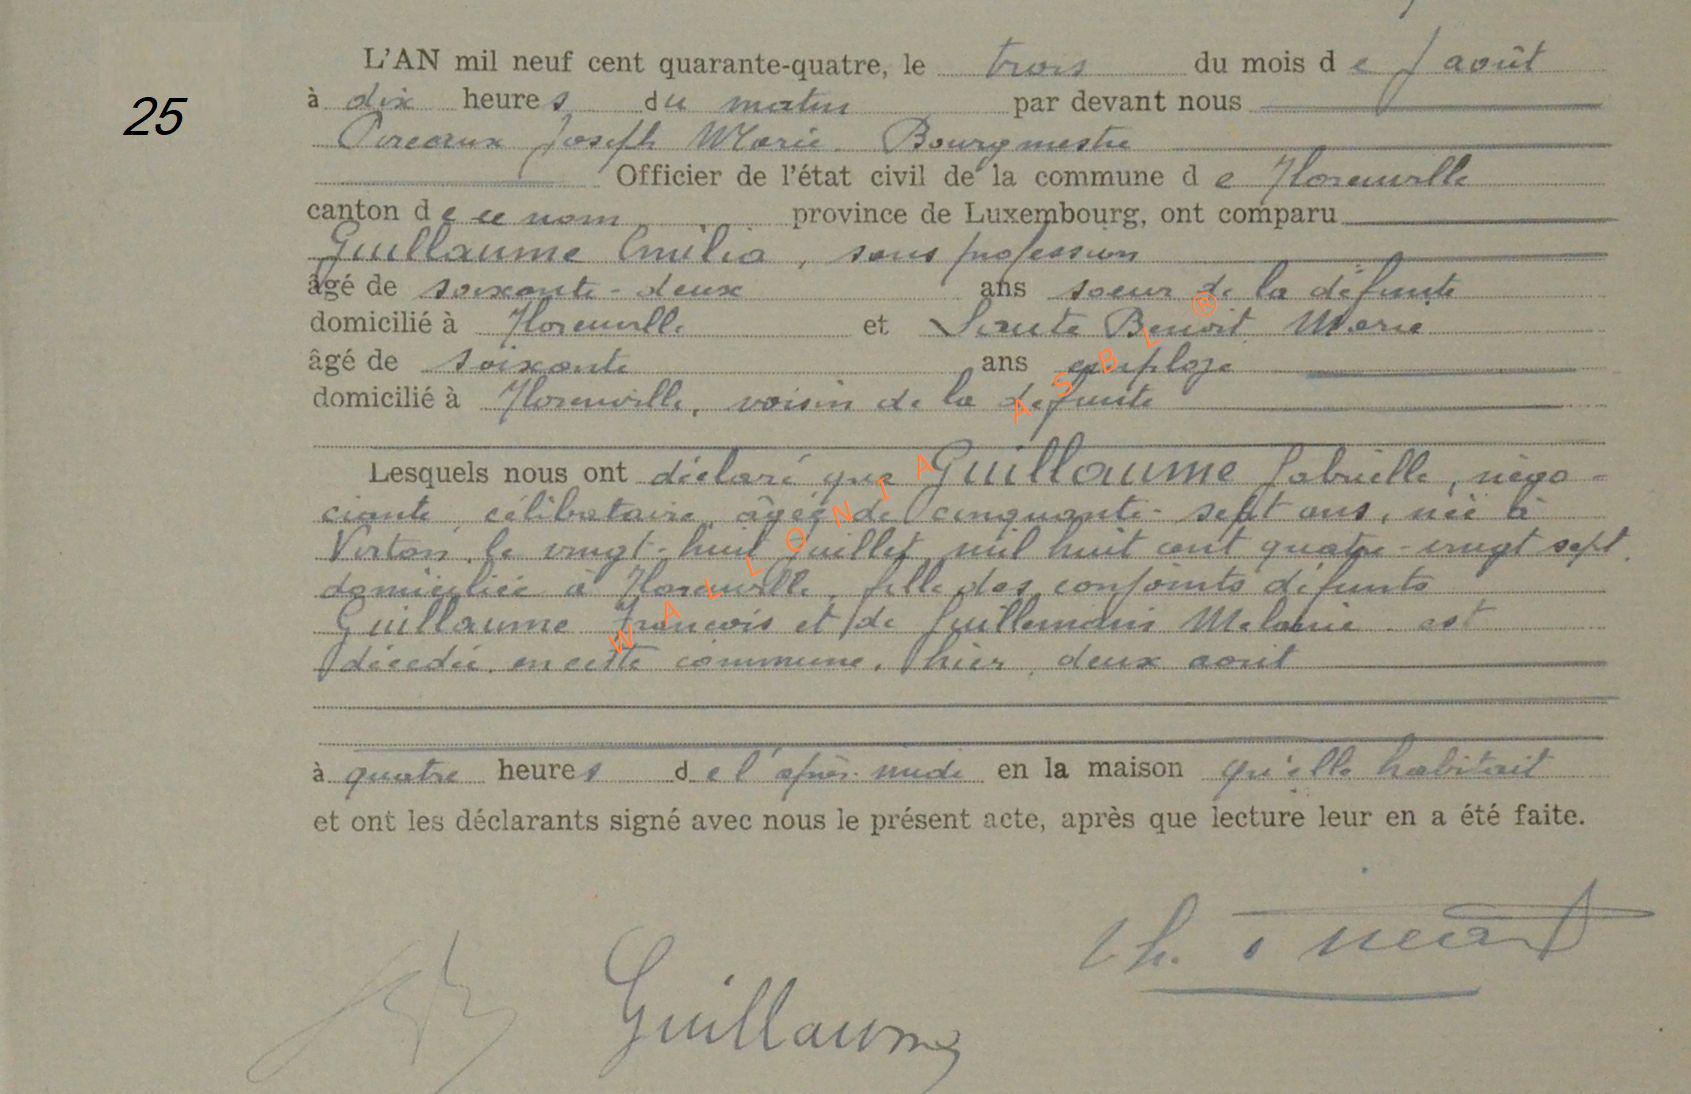 L'AN mil neuf cent quarante-quatre, le trois du mois de août
25
à dix heures du matin par devant nous
Joseph Marie. Bourgmestre
Officier de l'état civil de la commune de Florenville
canton de ce nom province de Luxembourg, ont comparu
Guillaume Emilia, sans profession
âgé de soixante-deux ans soeur de la défunte
domicilié à Florenville et Benoit Marie
âgé de soixante ans employé
domicilié à Florenville, voisin de la défunte
Lesquels nous ont déclaré que Guillaume Gabrielle, négo-
ciante, célibataire, âgée de cinquante-sept ans, née à
Virton, le vingt-huit juillet mil huit cent quatre-vingt sept.
domiciliée à Florenville, fille des conjoints défunts
Guillaume François et de Guillemain Melanie. est
décedée, en cette commune, hier, deux août
à quatre heures de l'après-midi en la maison qu'elle habitait
et ont les déclarants signé avec nous le présent acte, après que lecture leur en a été faite.
Guillaume
WALLONIA ASBL ®